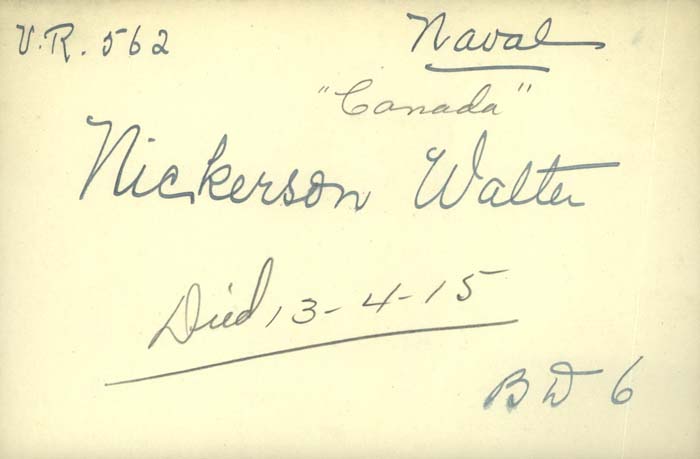 V.R. 562 Naval
"Canada"
Nickerson Walter
Died 13-4-15
BW 6